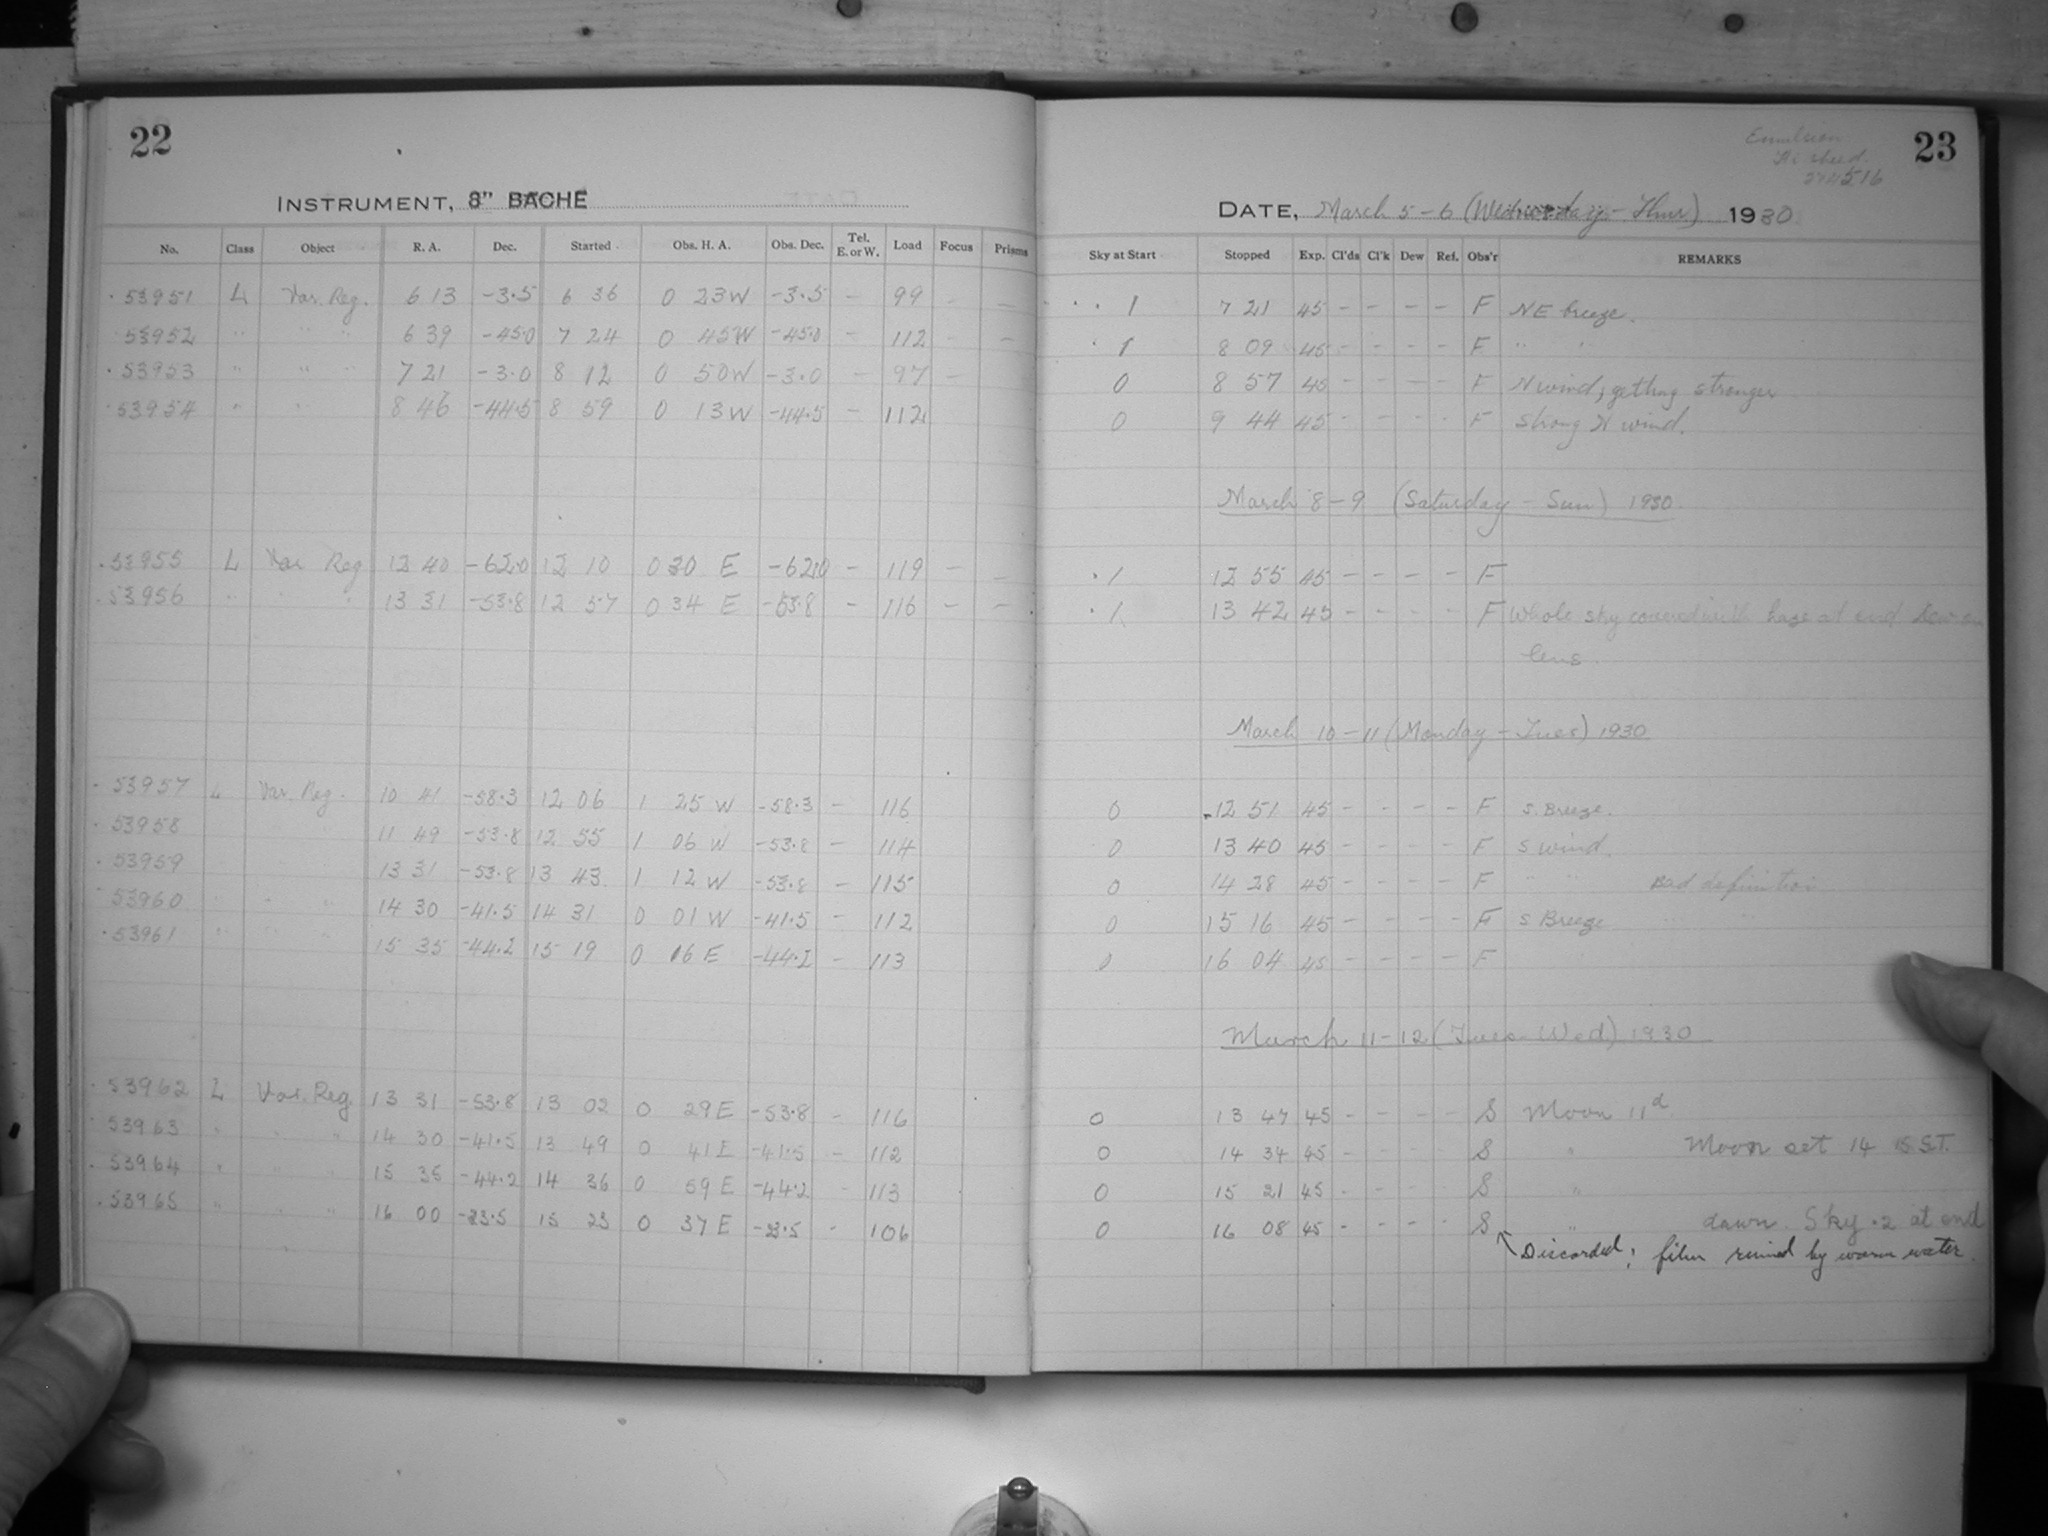 22
INSTRUMENT, 8" BACHE
No. Class Object R. A. Dec. Started Obs. H. A. Obs. Dec. Tel. E. or W. Load Focus Prisms
53951 L Var. Reg. 6 13 -3.5 6 36 0 23 W -3.5 - 99 - -
53952 " " " 6 39 -45.0 7 24 0 45 W -45.0 - 112 - -
53953 " " " 7 21 -3.0 8 12 0 50 W -3.0 - 97 -
53954 " " 8 46 -44.5 8 59 0 13 W -44.5 - 112
53955 L Var Reg 12 40 -62.0 12 10 0 30 E -62.0 - 119 - -
53956 " " " 13 31 -53.8 12 57 0 34 E -53.8 - 116 - -
53957 L Var. Reg. 10 41 -58.3 12 06 1 25 W -58.3 - 116
53958 11 49 -53.8 12 55 1 06 W -53.8 - 114
53959 13 31 -53.8 13 43 1 12 W -53.8 - 115
53960 " " " 14 30 -41.5 14 31 0 01 W -41.5 - 112
53961 " " " 15 35 -44.2 15 19 0 16 E -44.2 - 113
53962 L Var. Reg. 13 31 -53.8 13 02 0 29 E -53.8 - 116
53963 " " " 14 30 -41.5 13 49 0 41 E -41.5 - 112
53964 " " " 15 35 -44.2 14 36 0 59 E -44.2 - 113
53965 " " " 16 00 -23.5 15 23 0 37 E -23.5 - 106
23
Emulsion
516
DATE, March 5-6 (Wednesday - Thur) 1930
Sky at Start Stopped Exp. Cl'ds Cl'k Dew Ref. Obs'r REMARKS
.1 7 21 45 - - - - F NE breeze.
.1 8 09 45 - - - - F " "
0 8 57 45 - - - - F N wind, getting stronger
0 9 44 45 - - - - F Strong N wind.
March 8-9 (Saturday - Sun) 1930
.1 12 55 45 - - - - F
.1 13 42 45 - - - - F Whole sky covered with haze at end Dew on
lens.
March 10-11 (Monday - Tues) 1930
0 12 51 45 - - - - F S. Breeze.
0 13 40 45 - - - - F S wind.
0 14 28 45 - - - - F " " Bad definition
0 15 16 45 - - - - F S Breeze
0 16 04 45 - - - - F
March 11-12 (Tues-Wed) 1930
0 13 47 45 - - - - S Moon 11d
0 14 34 45 - - - - S " Moon set 14 15 S.T.
0 15 21 45 - - - - S "
0 16 08 45 - - - - S " dawn. Sky .2 at end
Discarded; film ruined by warm water.